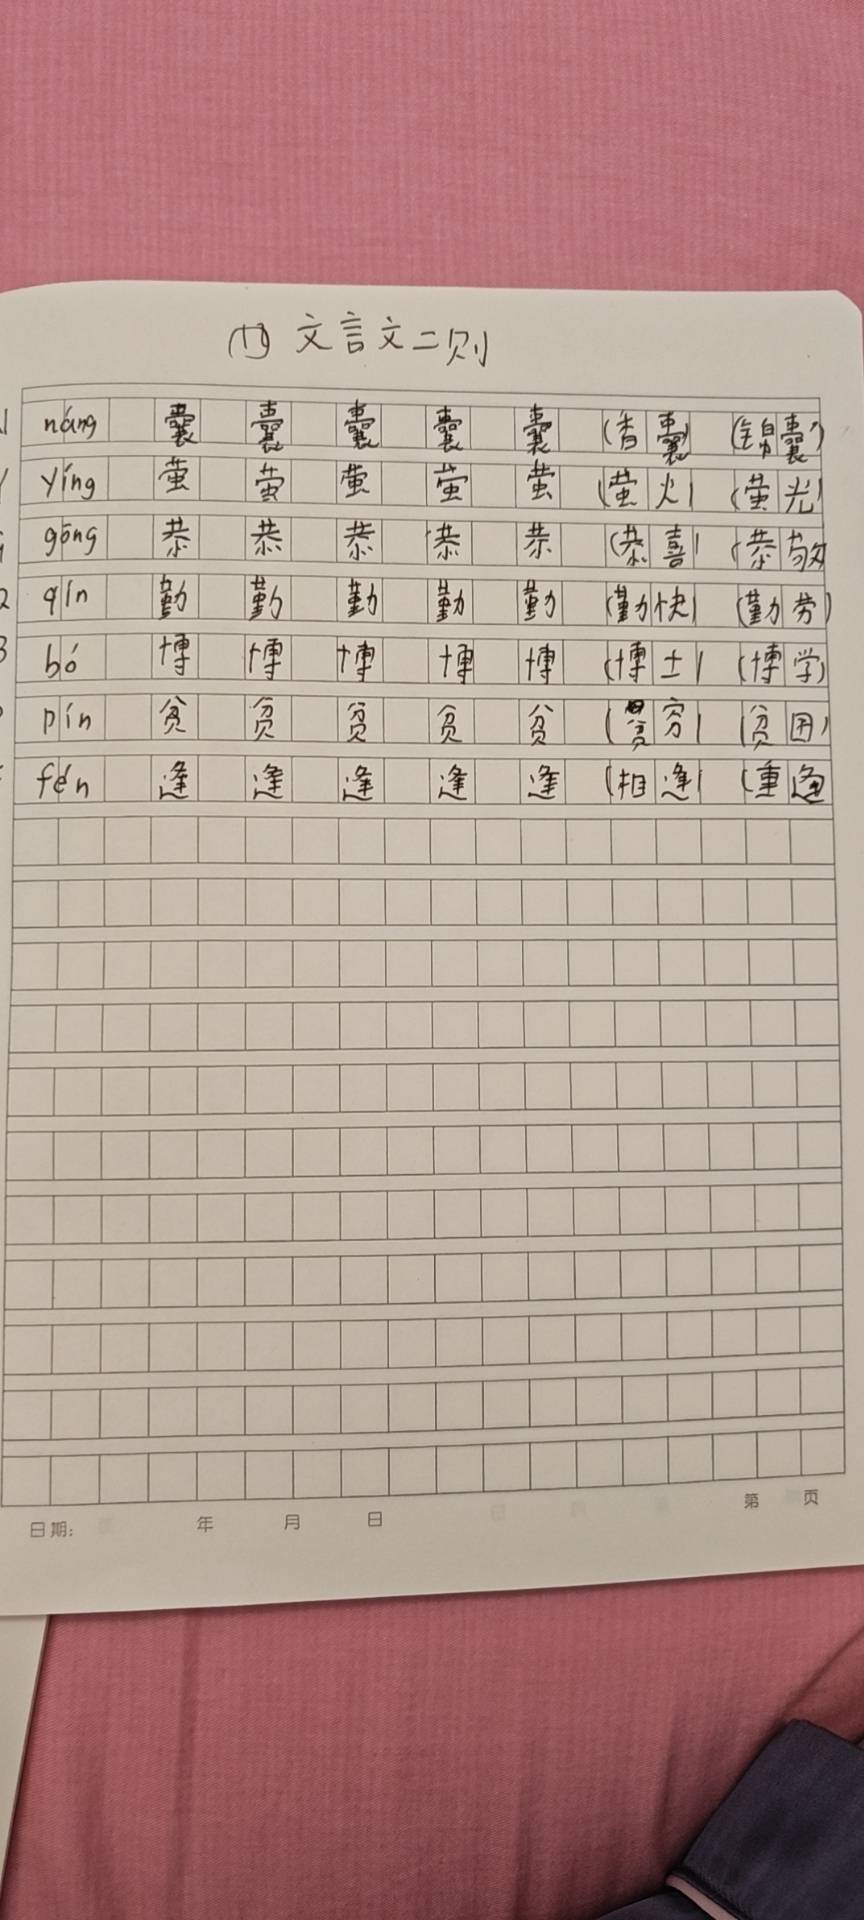 文言文二则
náng 囊 囊 囊 囊 囊 (香囊) (锦囊)
yíng 萤 萤 萤 萤 萤 (萤火) (萤光)
gōng 恭 恭 恭 恭 恭 (恭喜) (恭敬
qín 勤 勤 勤 勤 勤 (勤快) (勤劳)
bó 博 博 博 博 博 (博士) (博学)
pín 贫 贫 贫 贫 贫 (贫穷) (贫困)
fén 逢 逢 逢 逢 逢 (相逢) (重逢
日期: 年 月 日 第 页